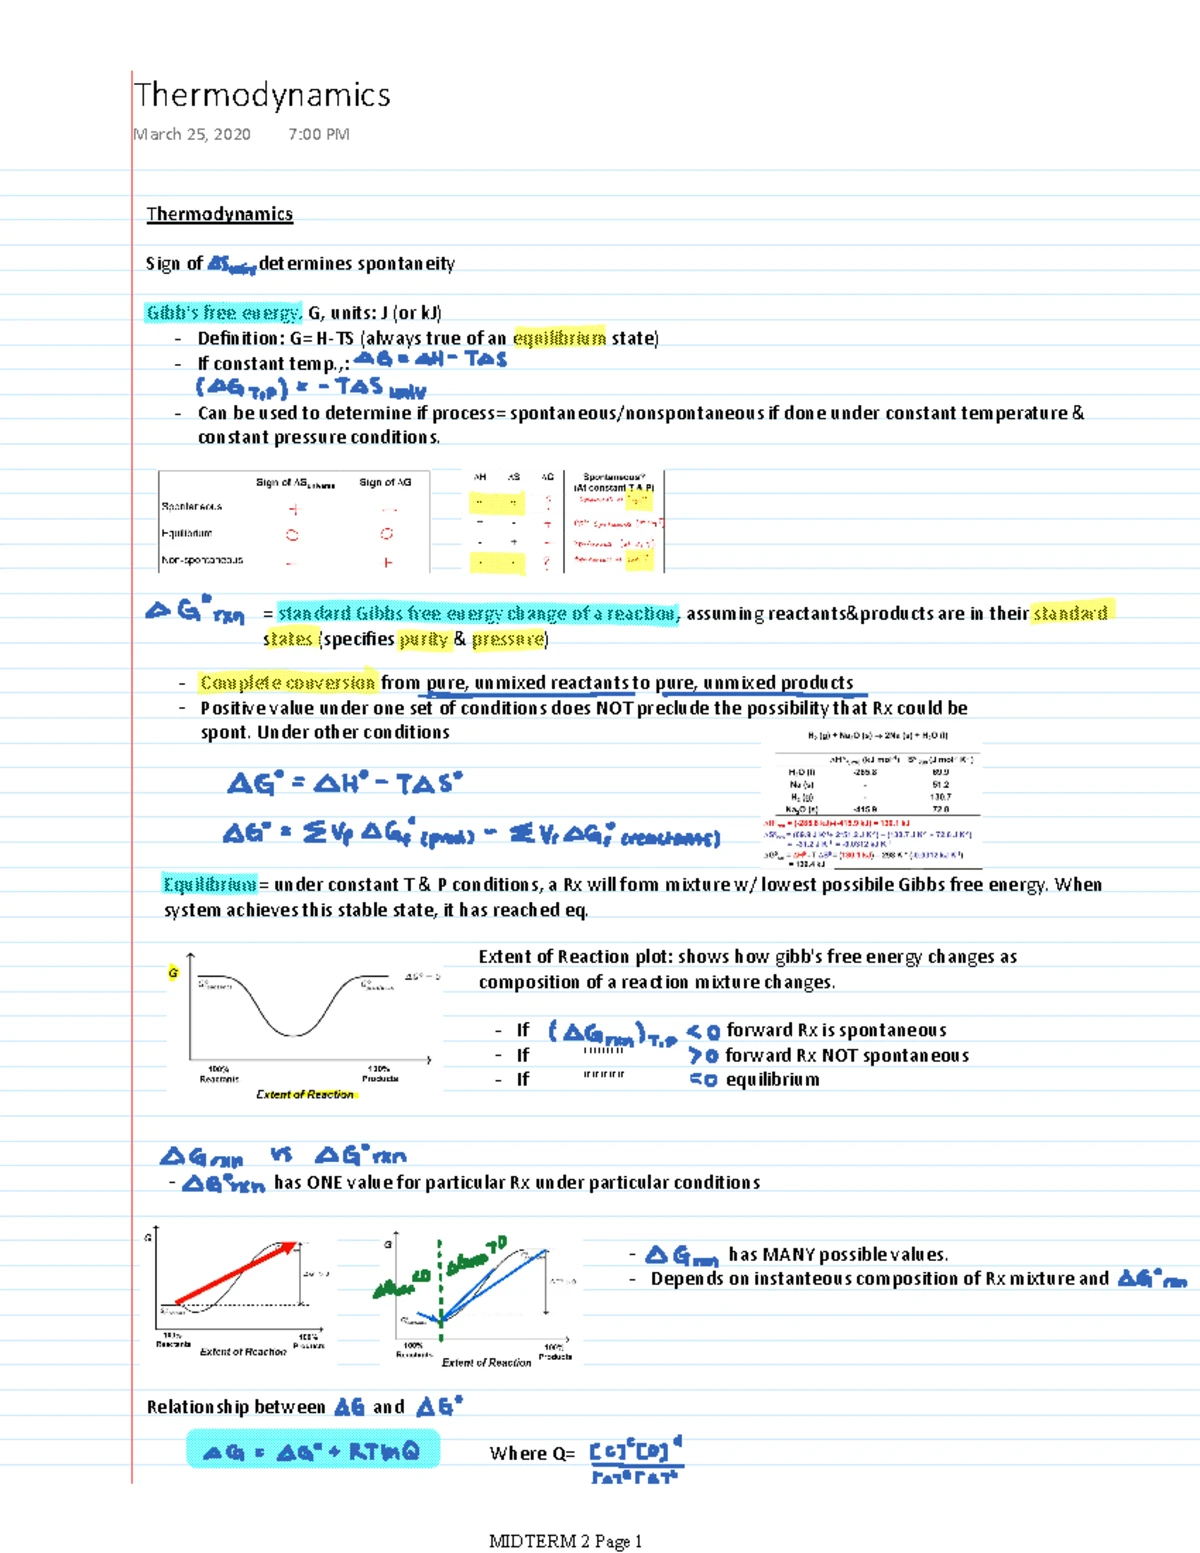 Thermodynamics
March 25, 2020 7:00 PM
Thermodynamics
Sign of ΔSuniv determines spontaneity
Gibb's free energy, G, units: J (or kJ)
- Definition: G= H-TS (always true of an equilibrium state)
- If constant temp.,: ΔG = ΔH - TΔS
(ΔG T,P) = - TΔS univ
- Can be used to determine if process= spontaneous/nonspontaneous if done under constant temperature &
constant pressure conditions.
Sign of ΔSuniverse Sign of ΔG
Spontaneous + −
Equilibrium 0 0
Non-spontaneous − +
ΔH ΔS ΔG Spontaneous?
(At constant T & P)
ΔG°rxn = standard Gibbs free energy change of a reaction, assuming reactants&products are in their standard
states (specifies purity & pressure)
- Complete conversion from pure, unmixed reactants to pure, unmixed products
- Positive value under one set of conditions does NOT preclude the possibility that Rx could be
spont. Under other conditions
H₂ (g) + Na₂O (s) → 2Na (s) + H₂O (l)
H₂O (l) -285.8 69.9
Na (s) - 51.2
H₂ (g) - 130.7
Na₂O (s) -415.9 72.8
ΔG° = ΔH° - TΔS°
ΔG° = Σ Vp ΔGf° (prod) - Σ Vr ΔGf° (reactants)
Equilibrium = under constant T & P conditions, a Rx will form mixture w/ lowest possibile Gibbs free energy. When
system achieves this stable state, it has reached eq.
G
G°reactants G°products ΔG° = 0
100% Reactants 100% Products
Extent of Reaction
Extent of Reaction plot: shows how gibb's free energy changes as
composition of a reaction mixture changes.
- If (ΔGrxn)T,P < 0 forward Rx is spontaneous
- If '''''''' > 0 forward Rx NOT spontaneous
- If '''''''' = 0 equilibrium
ΔGrxn vs ΔG°rxn
- ΔG°rxn has ONE value for particular Rx under particular conditions
G
100% Reactants 100% Products
Extent of Reaction
G
ΔGrxn <0 ΔGrxn >0
100% Reactants 100% Products
Extent of Reaction
- ΔGrxn has MANY possible values.
- Depends on instanteous composition of Rx mixture and ΔG°rxn
Relationship between ΔG and ΔG°
ΔG = ΔG° + RTlnQ Where Q= [C]ᶜ[D]ᵈ
MIDTERM 2 Page 1